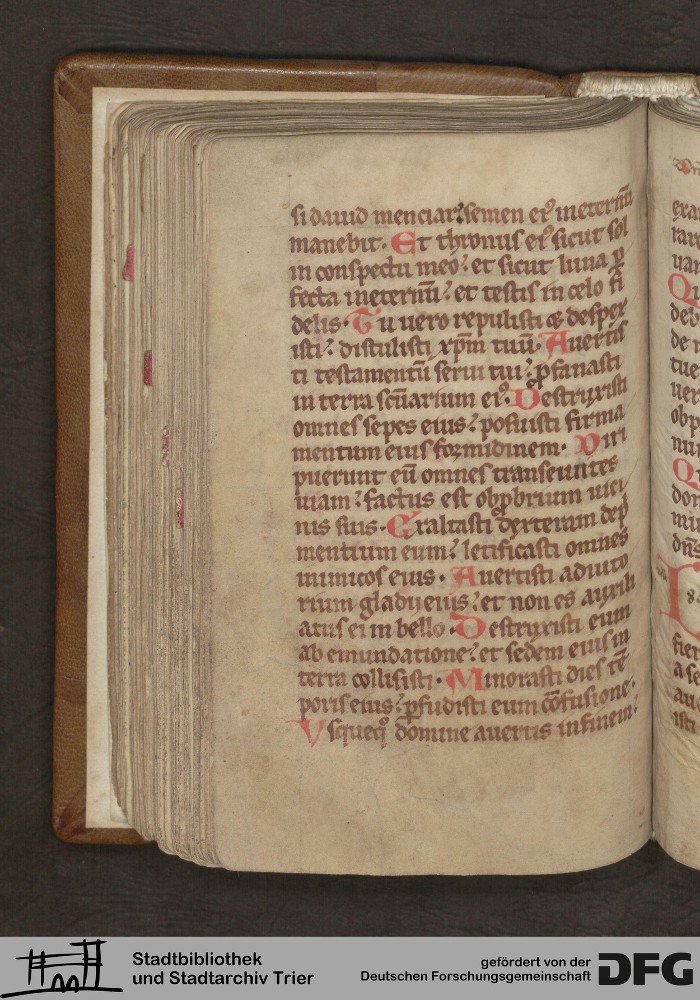 si dauid menciar? semen ei᷒ ineternū
manebit. Et thronus ei᷒ sicut sol
in conspectu meo? et sicut luna ꝑ
fecta ineternū? et testis in celo fi
delis. Tu uero repulisti ⁊ despex
isti? distulisti xp̄m tuū. Auertis
ti testamentū serui tui? ꝓfanasti
in terra scūarium ei᷒. Destruxisti
omnes sepes eius? posuisti firma
mentum eius formidinem. Diri
puerunt eū omnes transeuntes
uiam? factus est obꝓbrium uici
nis suis. Exaltasti dexteram dep̄
mentium eum? letificasti omnes
inimicos eius. Auertisti adiuto
rium gladij eius? et non es auxili
atus ei in bello. Destruxisti eum
ab emundatione? et sedem eius in
terra collisisti. Minorasti dies tē
poris eius? ꝑfudisti eum cōfusione.
Vsquequo domine auertis in finem.
Stadtbibliothek
und Stadtarchiv Trier
gefördert von der
Deutschen Forschungsgemeinschaft
DFG